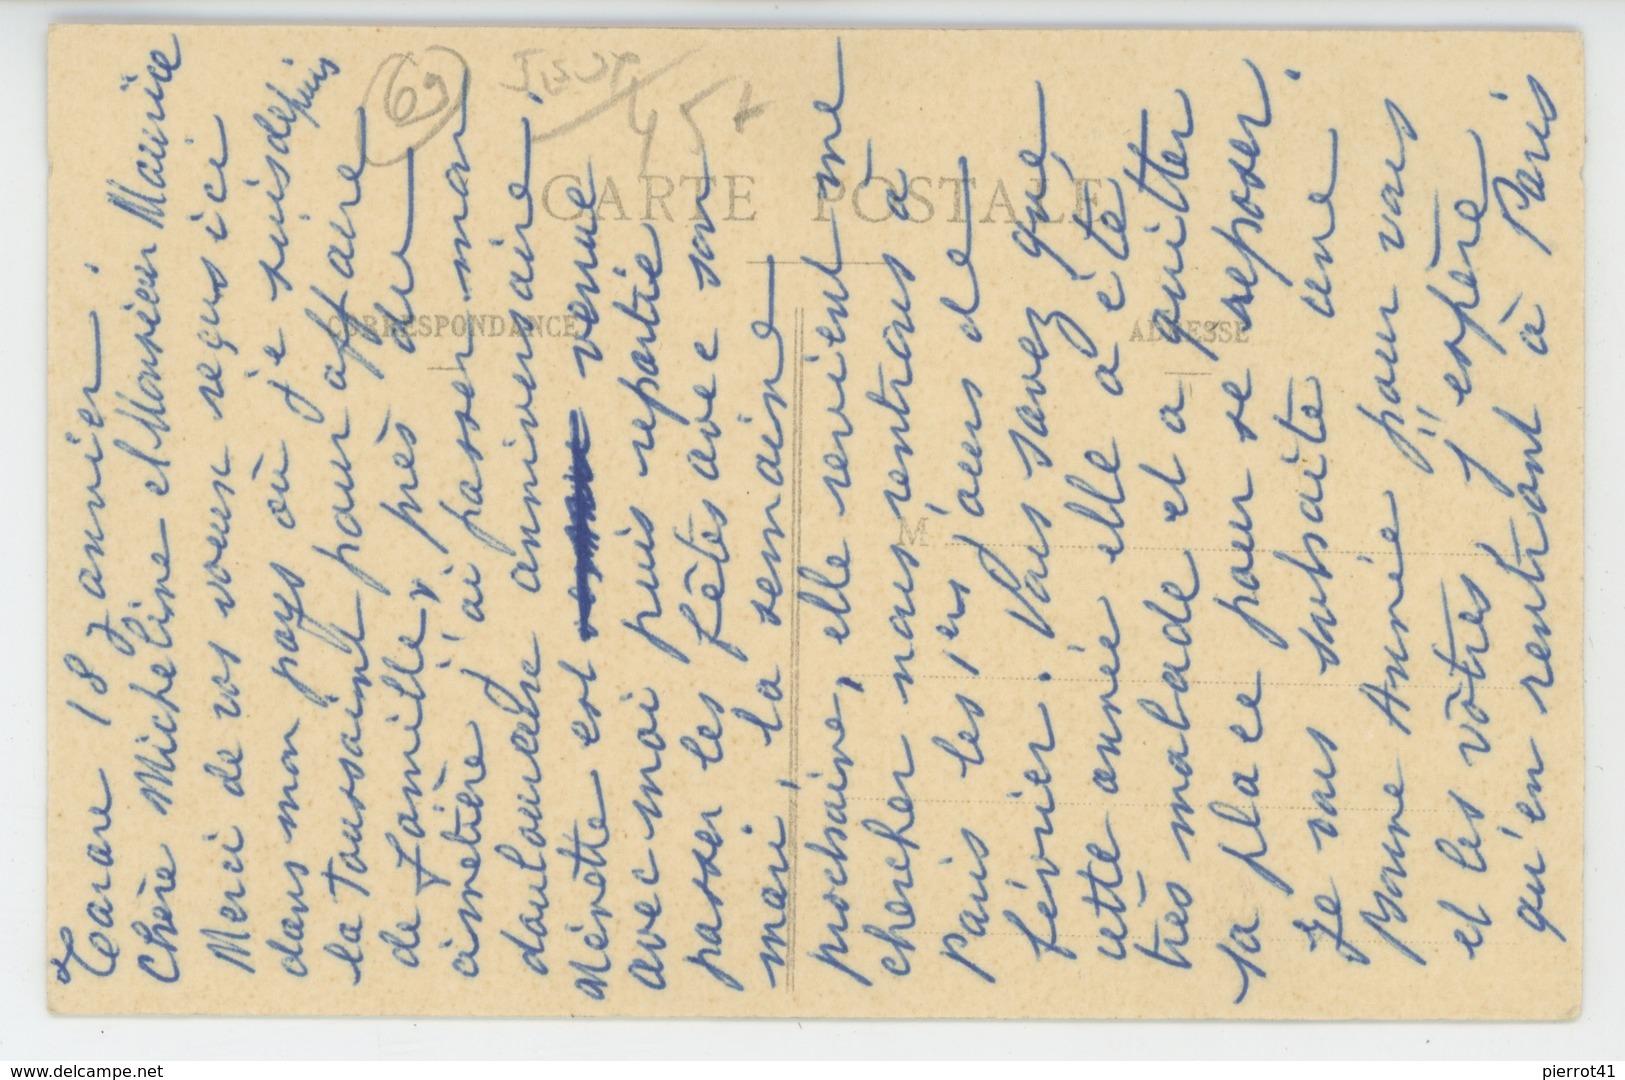 Tarare 18 janvier.
Chère Micheline et Monsieur Maurice
Merci de vos voeux reçus ici
dans mon pays où je suis depuis
la Toussaint pour affaire
de famille, près du
cimetière j'ai passer mon
douloureux anniversaire.
Nénette est venue
avec moi puis repartie
passer les fêtes avec son
mari, la semaine
prochaine, elle revient me
chercher nous rentrons à
Paris les 1ers jours de
février. Vous savez que
cette année elle a été
très malade et a quitter
sa place pour se reposer.
Je vous souhaite une
Bonne Année pour vous
et les vôtres j'espère
qu'en rentrant à Paris
69
45+
CARTE POSTALE
CORRESPONDANCE
ADRESSE
M
www.delcampe.net
pierrot41